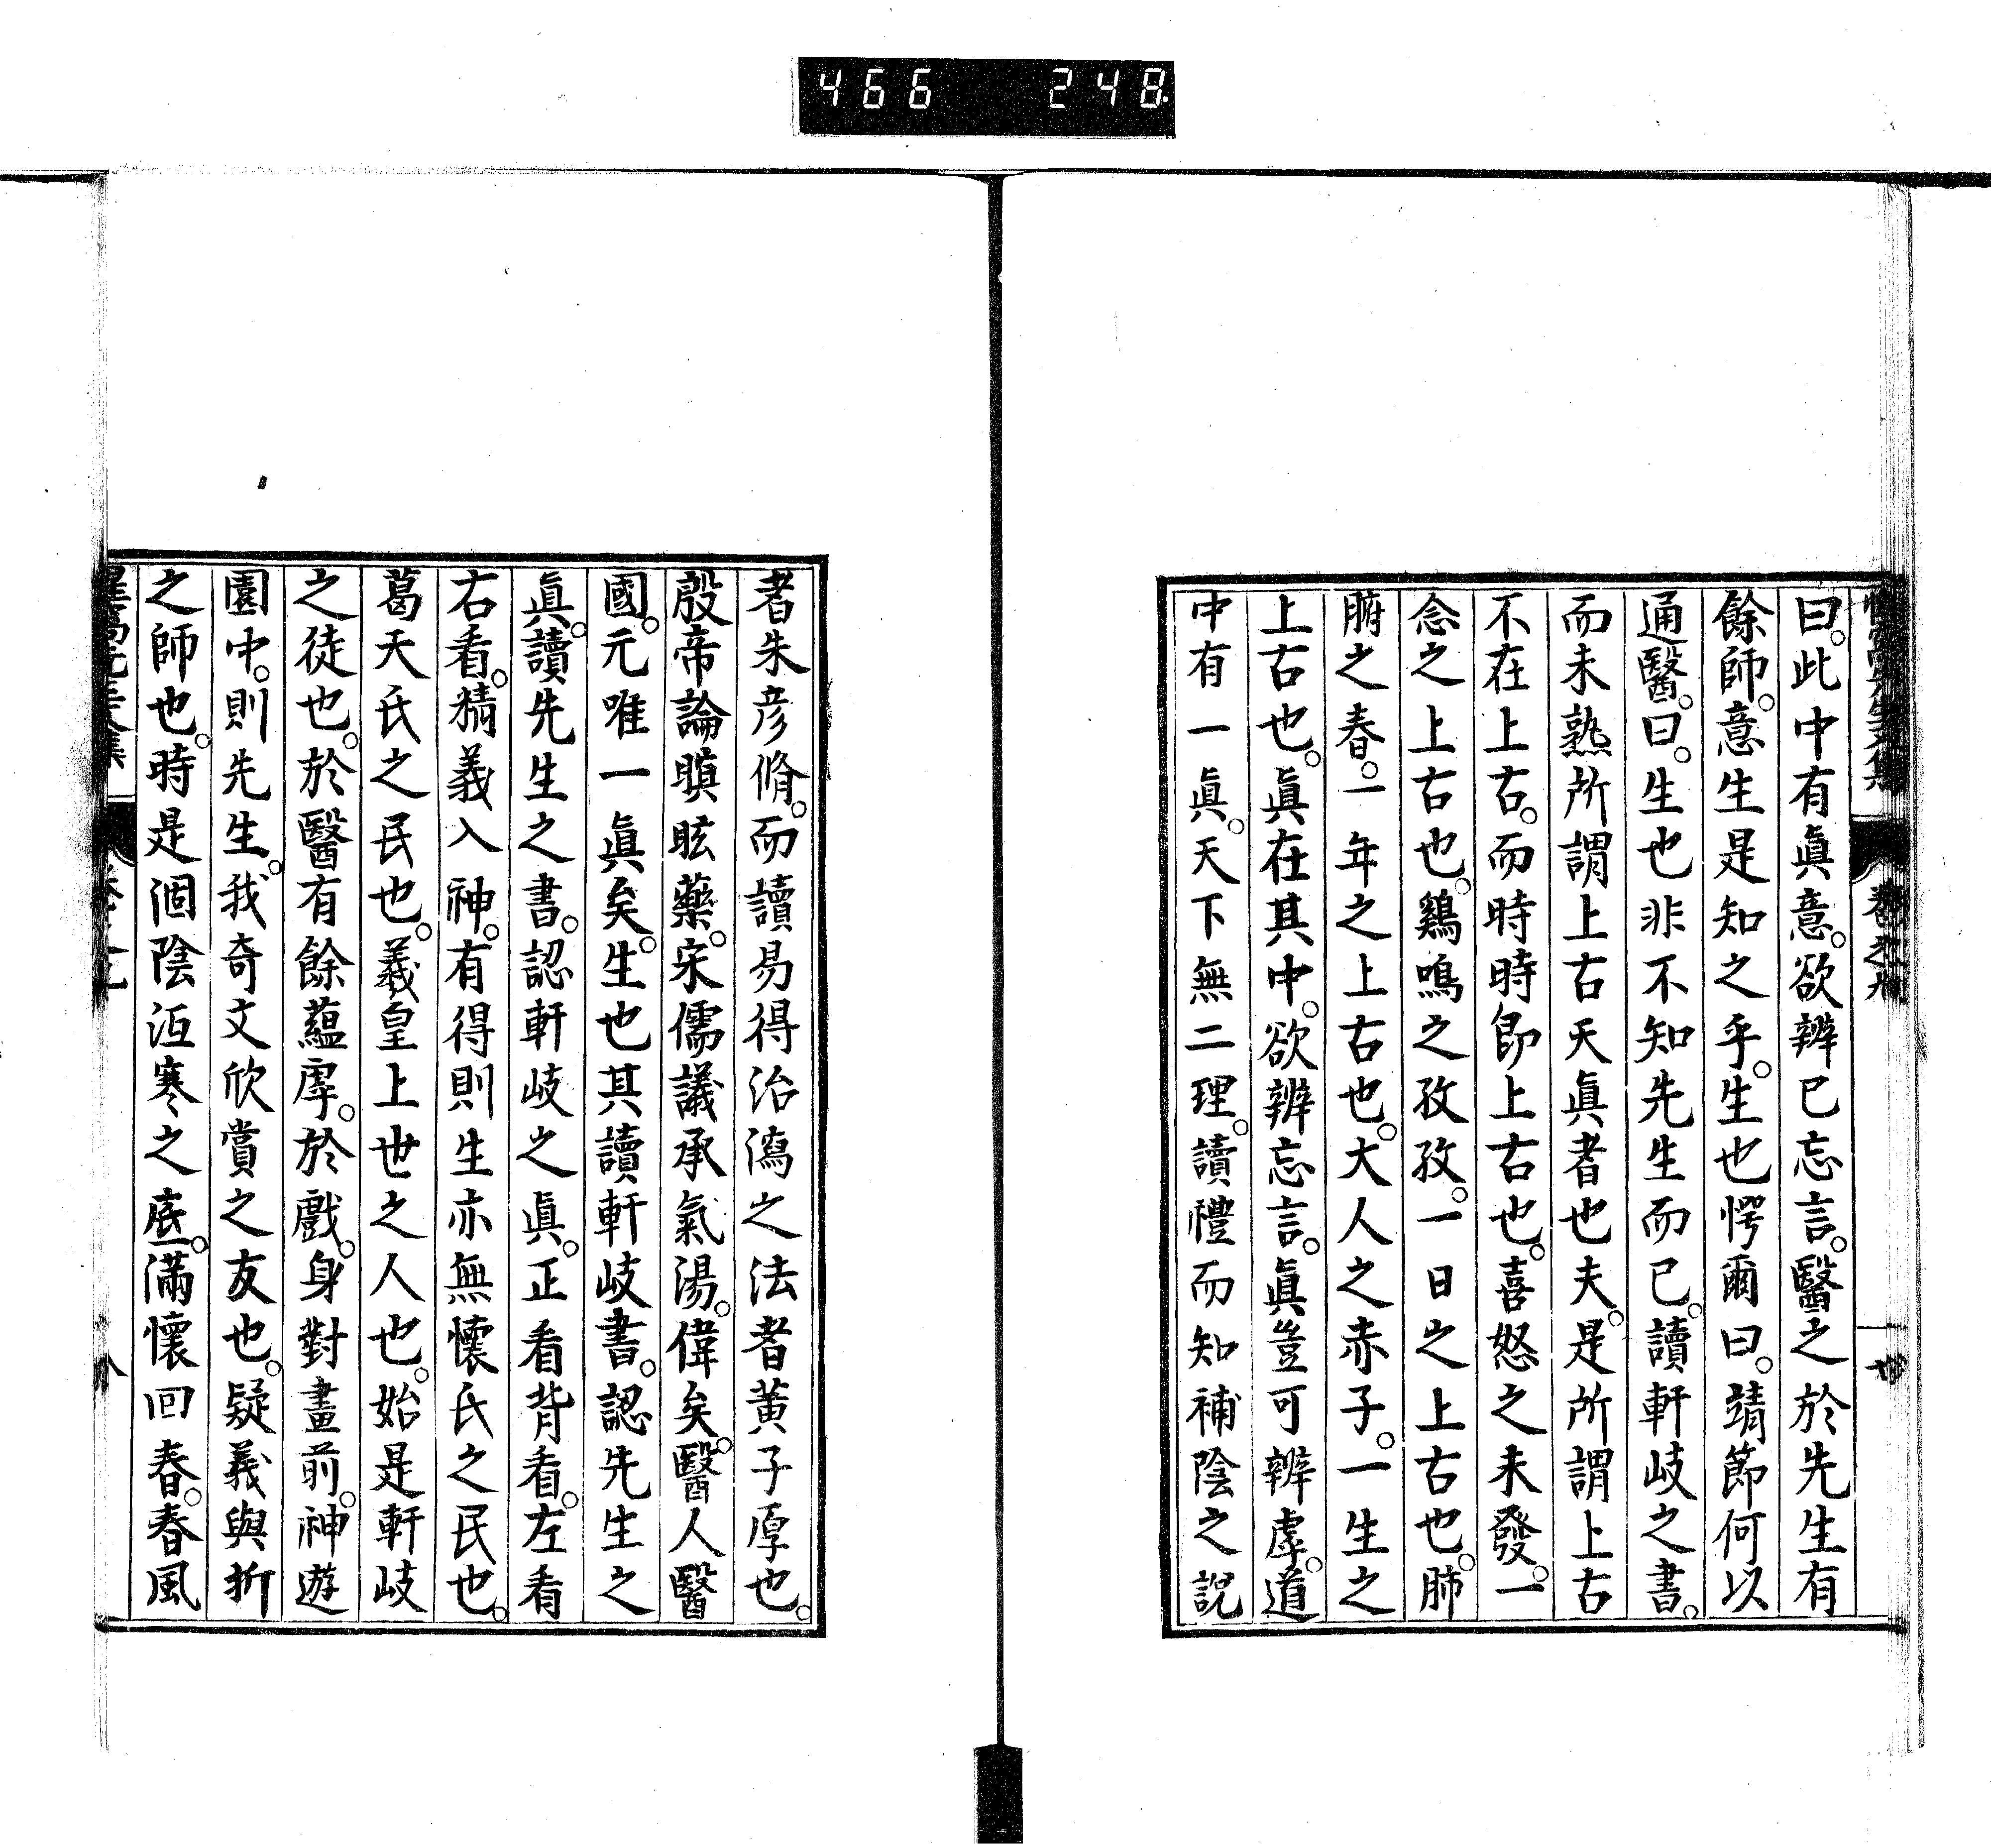 466 248
曰。此中有眞意。欲辨已忘言。醫之於先生有
餘師。意生是知之乎。生也愕爾曰。靖節何以
通醫。曰。生也非不知先生而已。讀軒岐之書。
而未熟所謂上古天眞者也夫。是所謂上古
不在上古。而時時卽上古也。喜怒之未發。一
念之上古也。鷄鳴之孜孜。一日之上古也。肺
腑之春。一年之上古也。大人之赤子。一生之
上古也。眞在其中。欲辨忘言。眞豈可辨虖。道
中有一眞。天下無二理。讀禮而知補陰之說
者朱彦脩。而讀易得治瀉之法者黃子厚也。
殷帝論瞑眩藥。宋儒議承氣湯。偉矣。醫人醫
國。元唯一眞矣。生也其讀軒岐書。認先生之
眞。讀先生之書。認軒岐之眞。正看背看。左看
右看。精義入神。有得則生亦無懷氏之民也。
葛天氏之民也。羲皇上世之人也。始是軒岐
之徒也。於醫有餘蘊虖。於戲。身對畫前。神遊
園中。則先生。我奇文欣賞之友也。疑義與折
之師也。時是涸陰沍寒之底。滿懷回春。春風